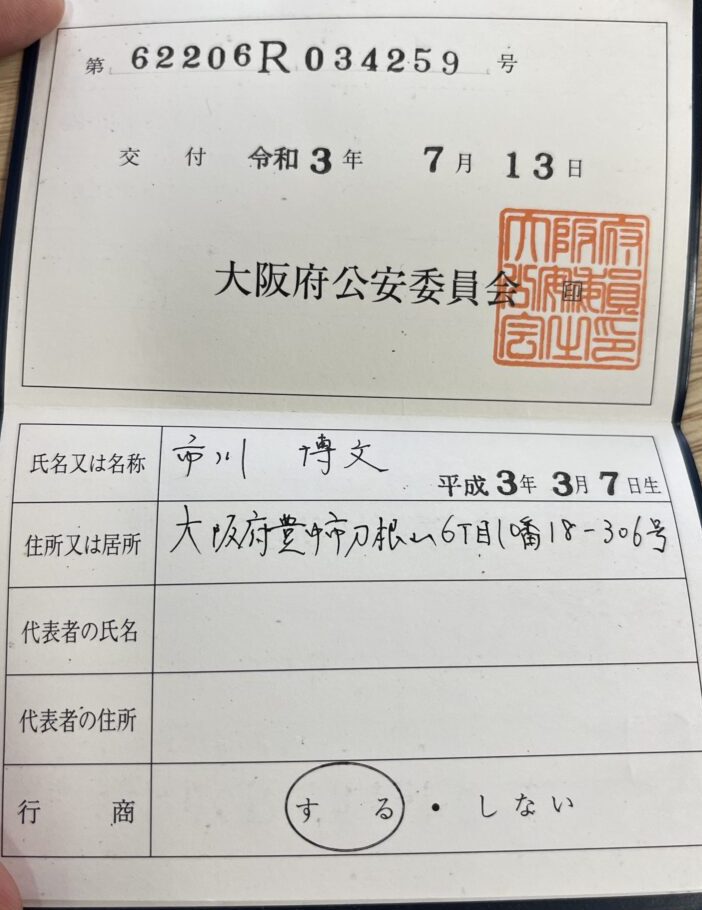 第 62206R034259 号
交付 令和3年 7月 13日
大阪府公安委員会 印
氏名又は名称 市川 博文
平成3年 3月 7日生
住所又は居所 大阪府豊中市刀根山6丁目10番18-306号
代表者の氏名
代表者の住所
行商 する・しない